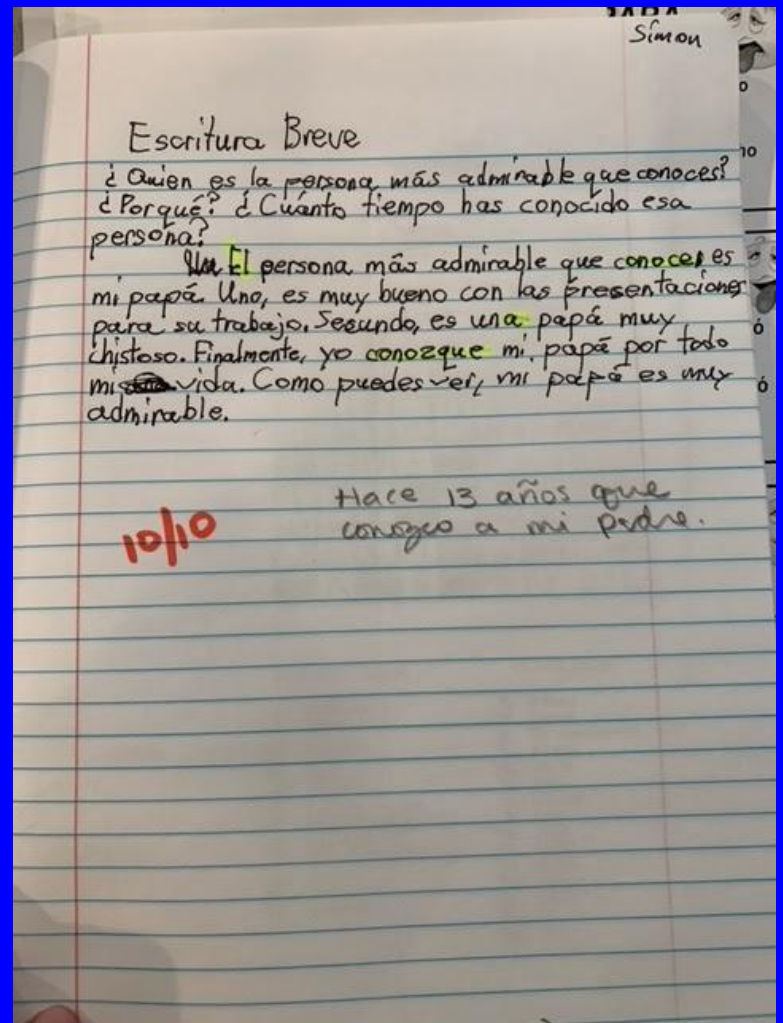 Simon
Escritura Breve
¿Quien es la persona más admirable que conoces?
¿Porqué? ¿Cuánto tiempo has conocido esa
persona?
El persona más admirable que conoces es
mi papá. Uno, es muy bueno con las presentaciones
para su trabajo. Segundo, es una papá muy
chistoso. Finalmente, yo conozque mi papá por todo
mi vida. Como puedes ver, mi papá es muy
admirable.
Hace 13 años que
conozco a mi padre.
10/10